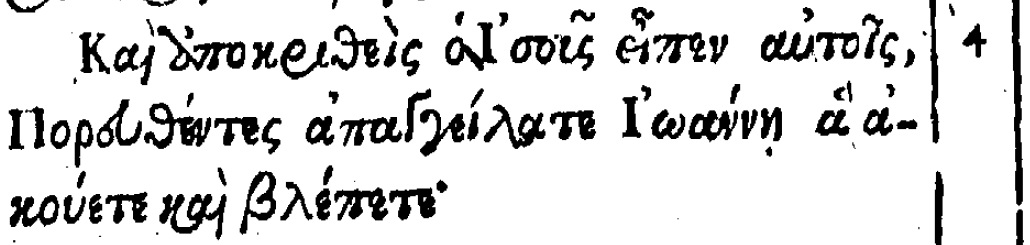 Καὶ ἀποκριθεὶς ὁ Ἰησοῦς εἶπεν αὐτοῖς, 4
Πορευθέντες ἀπαγγείλατε Ἰωάννῃ ἃ ἀ-
κούετε καὶ βλέπετε·